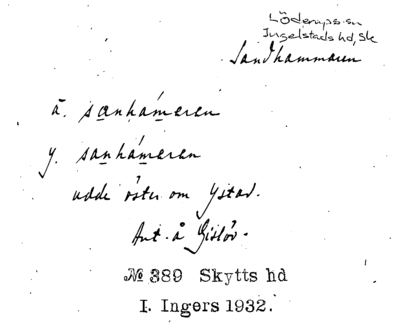 Löderups sn
Ingelstads hd, Sk
Sandhammaren
ä. sanhámeren
y. sanhámeren
udde öster om Ystad.
Ant. å Gislöv.
№ 389 Skytts hd
I. Ingers 1932.